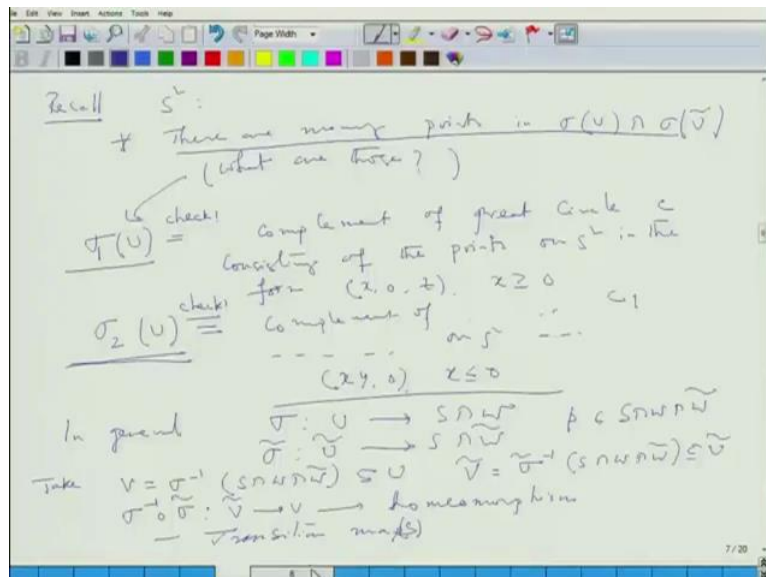 File Edit View Insert Actions Tools Help
Page Width
Recall S²:
* There are many points in σ(U) ∩ σ(Ũ)
(what are those?)
check!
σ₁(U) = complement of great circle C
consisting of the points on S² in the
form (x, 0, z), x ≥ 0
check!
σ₂(U) = complement of C₁
on S²
(x y, 0) x ≤ 0
In general σ : U → S∩W p ∈ S∩W∩W̃
σ̃ : Ũ → S∩W̃
Take V = σ⁻¹ (S∩W∩W̃) ⊆ U Ṽ = σ̃⁻¹ (S∩W∩W̃) ⊆ Ũ
σ⁻¹∘σ̃ : Ṽ → V → homeomorphism
— Transition map(s)
7/20